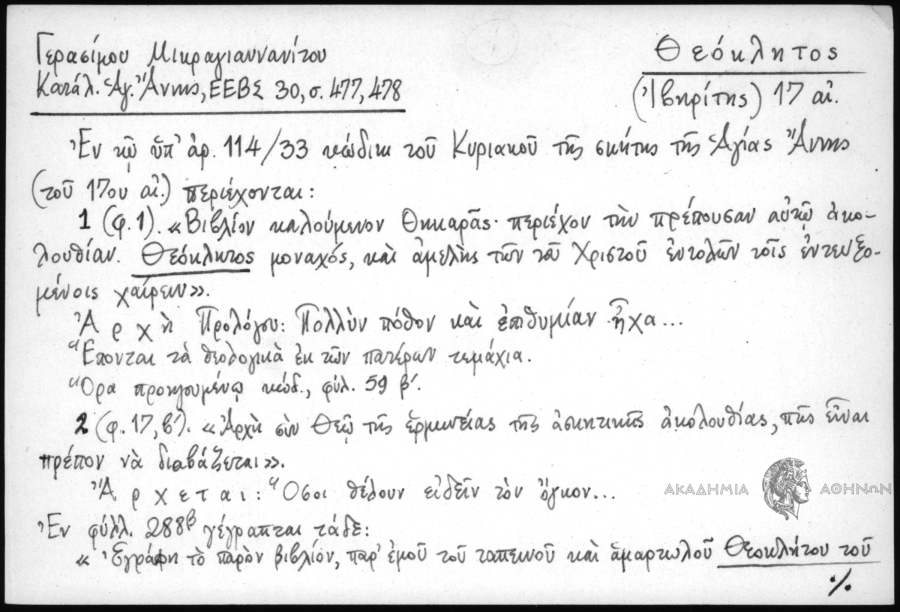 Γερασίμου Μικραγιαννανίτου
Θεόκλητος
Κατάλ. Ἁγ. Ἄννης, ΕΕΒΣ 30, σ. 477, 478
(Ἰβηρίτης) 17 αἰ.
Ἐν τῷ ὑπ' ἀρ. 114/33 κώδικι τοῦ Κυριακοῦ τῆς σκήτης τῆς Ἁγίας Ἄννης
(τοῦ 17ου αἰ.) περιέχονται:
1 (φ. 1). «Βιβλίον καλούμενον Θηκαρᾶς· περιέχον τὴν πρέπουσαν αὐτῷ ἀκο-
λουθίαν. Θεόκλητος μοναχός, καὶ ἀμελὴς τῶν τοῦ Χριστοῦ ἐντολῶν τοῖς ἐντευξο-
μένοις χαίρειν».
Ἀρχὴ Προλόγου: Πολλὺν πόθον καὶ ἐπιθυμίαν ἦχα...
Ἕπονται τὰ θεολογικὰ ἐκ τῶν πατέρων τεμάχια.
Ὅρα προηγουμένῳ κώδ., φύλ. 59 β'.
2 (φ. 17, β'). «Ἀρχὴ σὺν Θεῷ τῆς ἑρμηνείας τῆς ἀσκητικῆς ἀκολουθίας, πῶς εἶναι
πρέπον νὰ διαβάζεται».
Ἄρχεται: Ὅσοι θέλουν εἰδεῖν τὸν ὄγκον...
ΑΚΑΔΗΜΙΑ ΑΘΗΝΩΝ
Ἐν φύλλ. 288β γέγραπται τάδε:
« Ἐγράφη τὸ παρὸν βιβλίον, παρ' ἐμοῦ τοῦ ταπεινοῦ καὶ ἁμαρτωλοῦ Θεοκλήτου τοῦ
./.